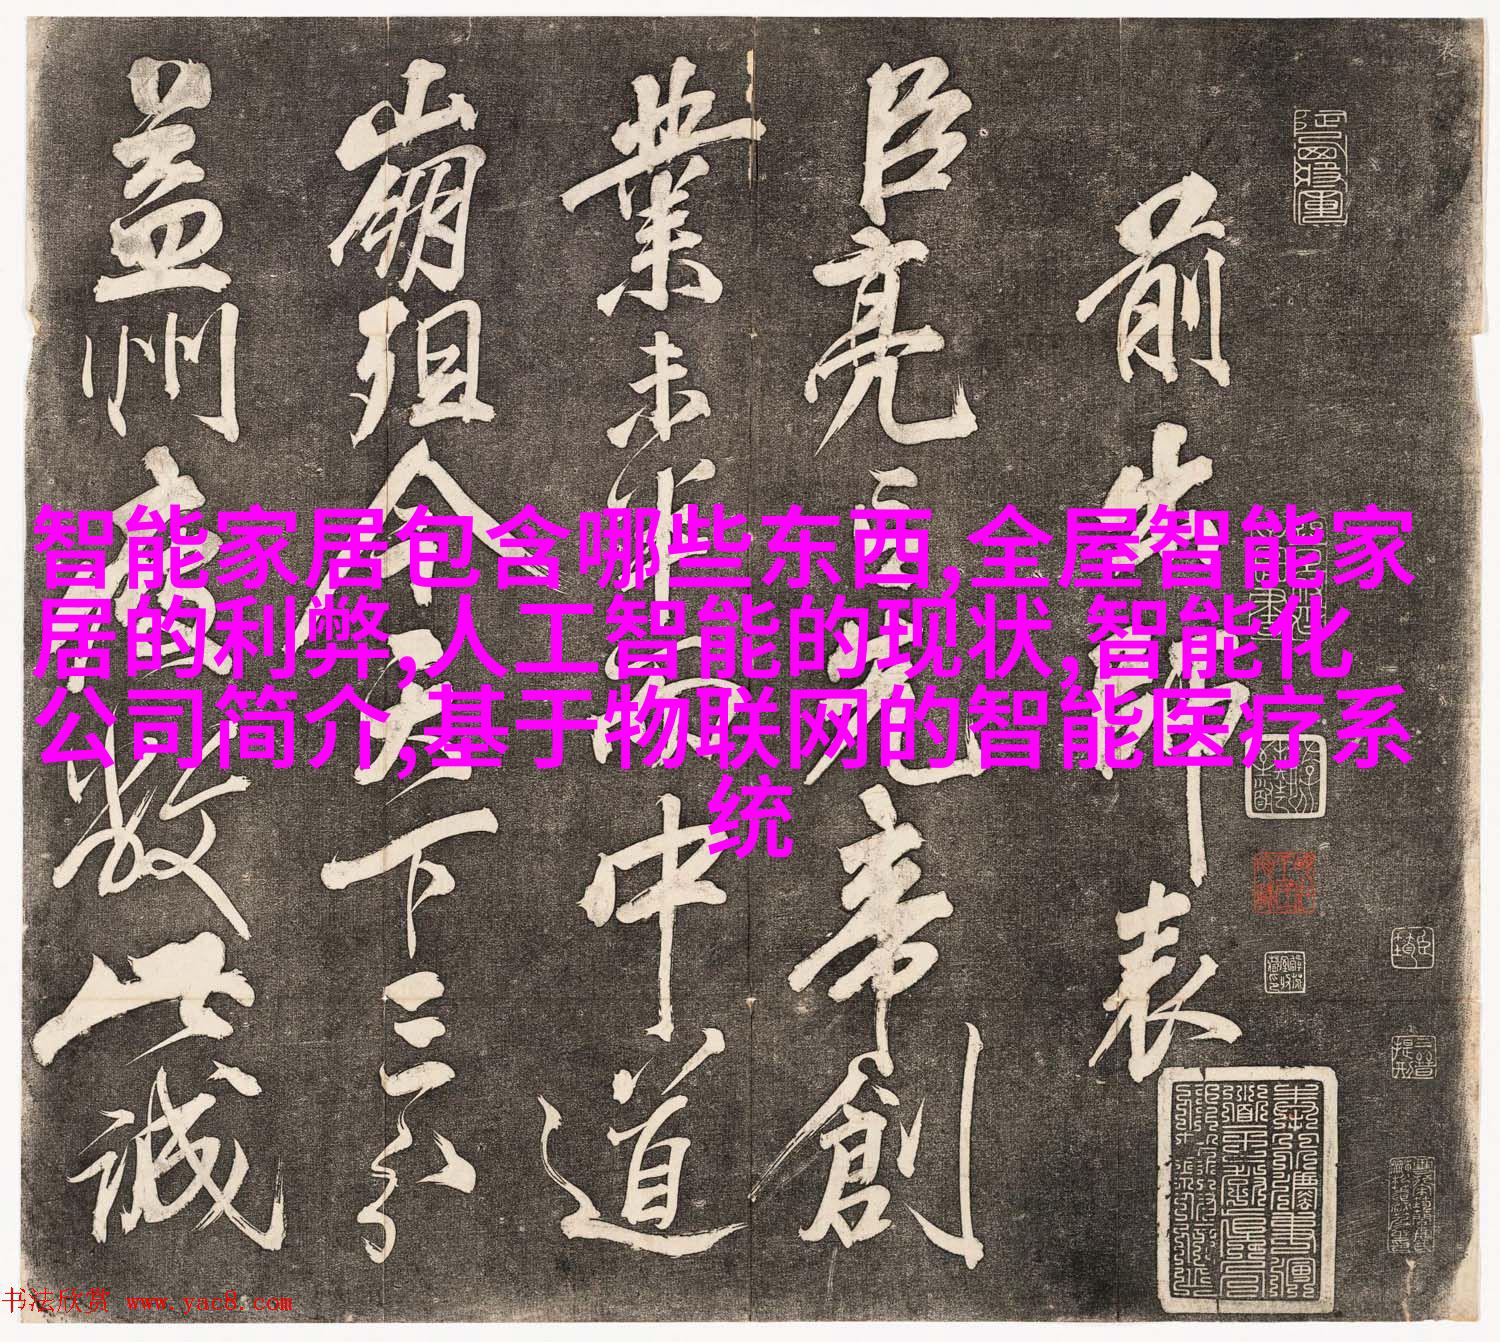 前出师表
臣亮言先帝創
業未半而中道
崩殂今天下三分
益州疲敝此誠
智能家居包含哪些东西,全屋智能家
居的利弊,人工智能的现状,智能化
公司简介,基于物联网的智能医疗系
统
书法欣赏 www.yac8.com